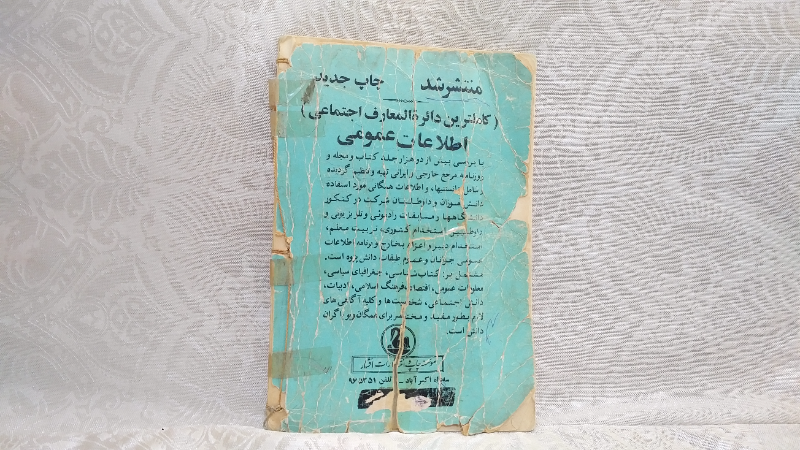 منتشر شد چاپ جدید
(کاملترین دائرةالمعارف اجتماعی)
اطلاعات عمومی
با بررسی بیش از دو هزار جلد کتاب و مجله و
روزنامه مرجع خارجی و ایرانی تهیه و تنظیم گردیده
و شامل دانستنیها، و اطلاعات همگانی مورد استفاده
دانش‌آموزان و داوطلبان شرکت در کنکور
دانشگاهها و مسابقات رادیوئی و تلویزیونی و
استخدام کشوری، تربیت معلم،
استخدام دبیر و اعزام بخارج و برنامه اطلاعات
عمومی جوانان و عموم طبقات دانش‌پژوه است.
مشتمل بر: کتاب‌شناسی، جغرافیای سیاسی،
معلومات عمومی، اقتصاد، فرهنگ اسلامی، ادبیات،
دانش اجتماعی، شخصیت‌ها و کلیه آگاهی‌های
لازم بطور مفید و مختصر برای همگان و پویندگان
دانش است.
مؤسسه چاپ و انتشارات افشار
اکبرآباد ـ تلفن ۹۷۵۳۵۱